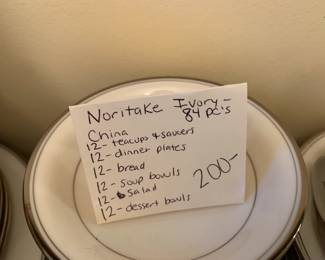 Noritake Ivory -
China 84 pc's
12- teacups & saucers
12- dinner plates
12- bread
12- soup bowls
12- salad
12- dessert bowls
200-